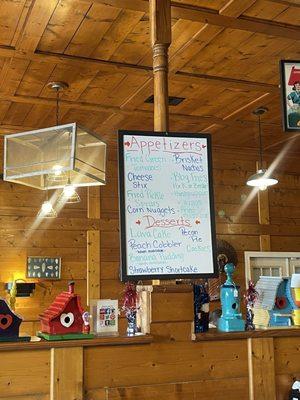 Appetizers
Fried Green Tomatoes
Brisket Nachos
Cheese Stix
Fried Pickle Spears
Corn Nuggets
Desserts
Lava Cake
Pecan Pie
Peach Cobbler
Cookies
Banana Pudding
Strawberry Shortcake